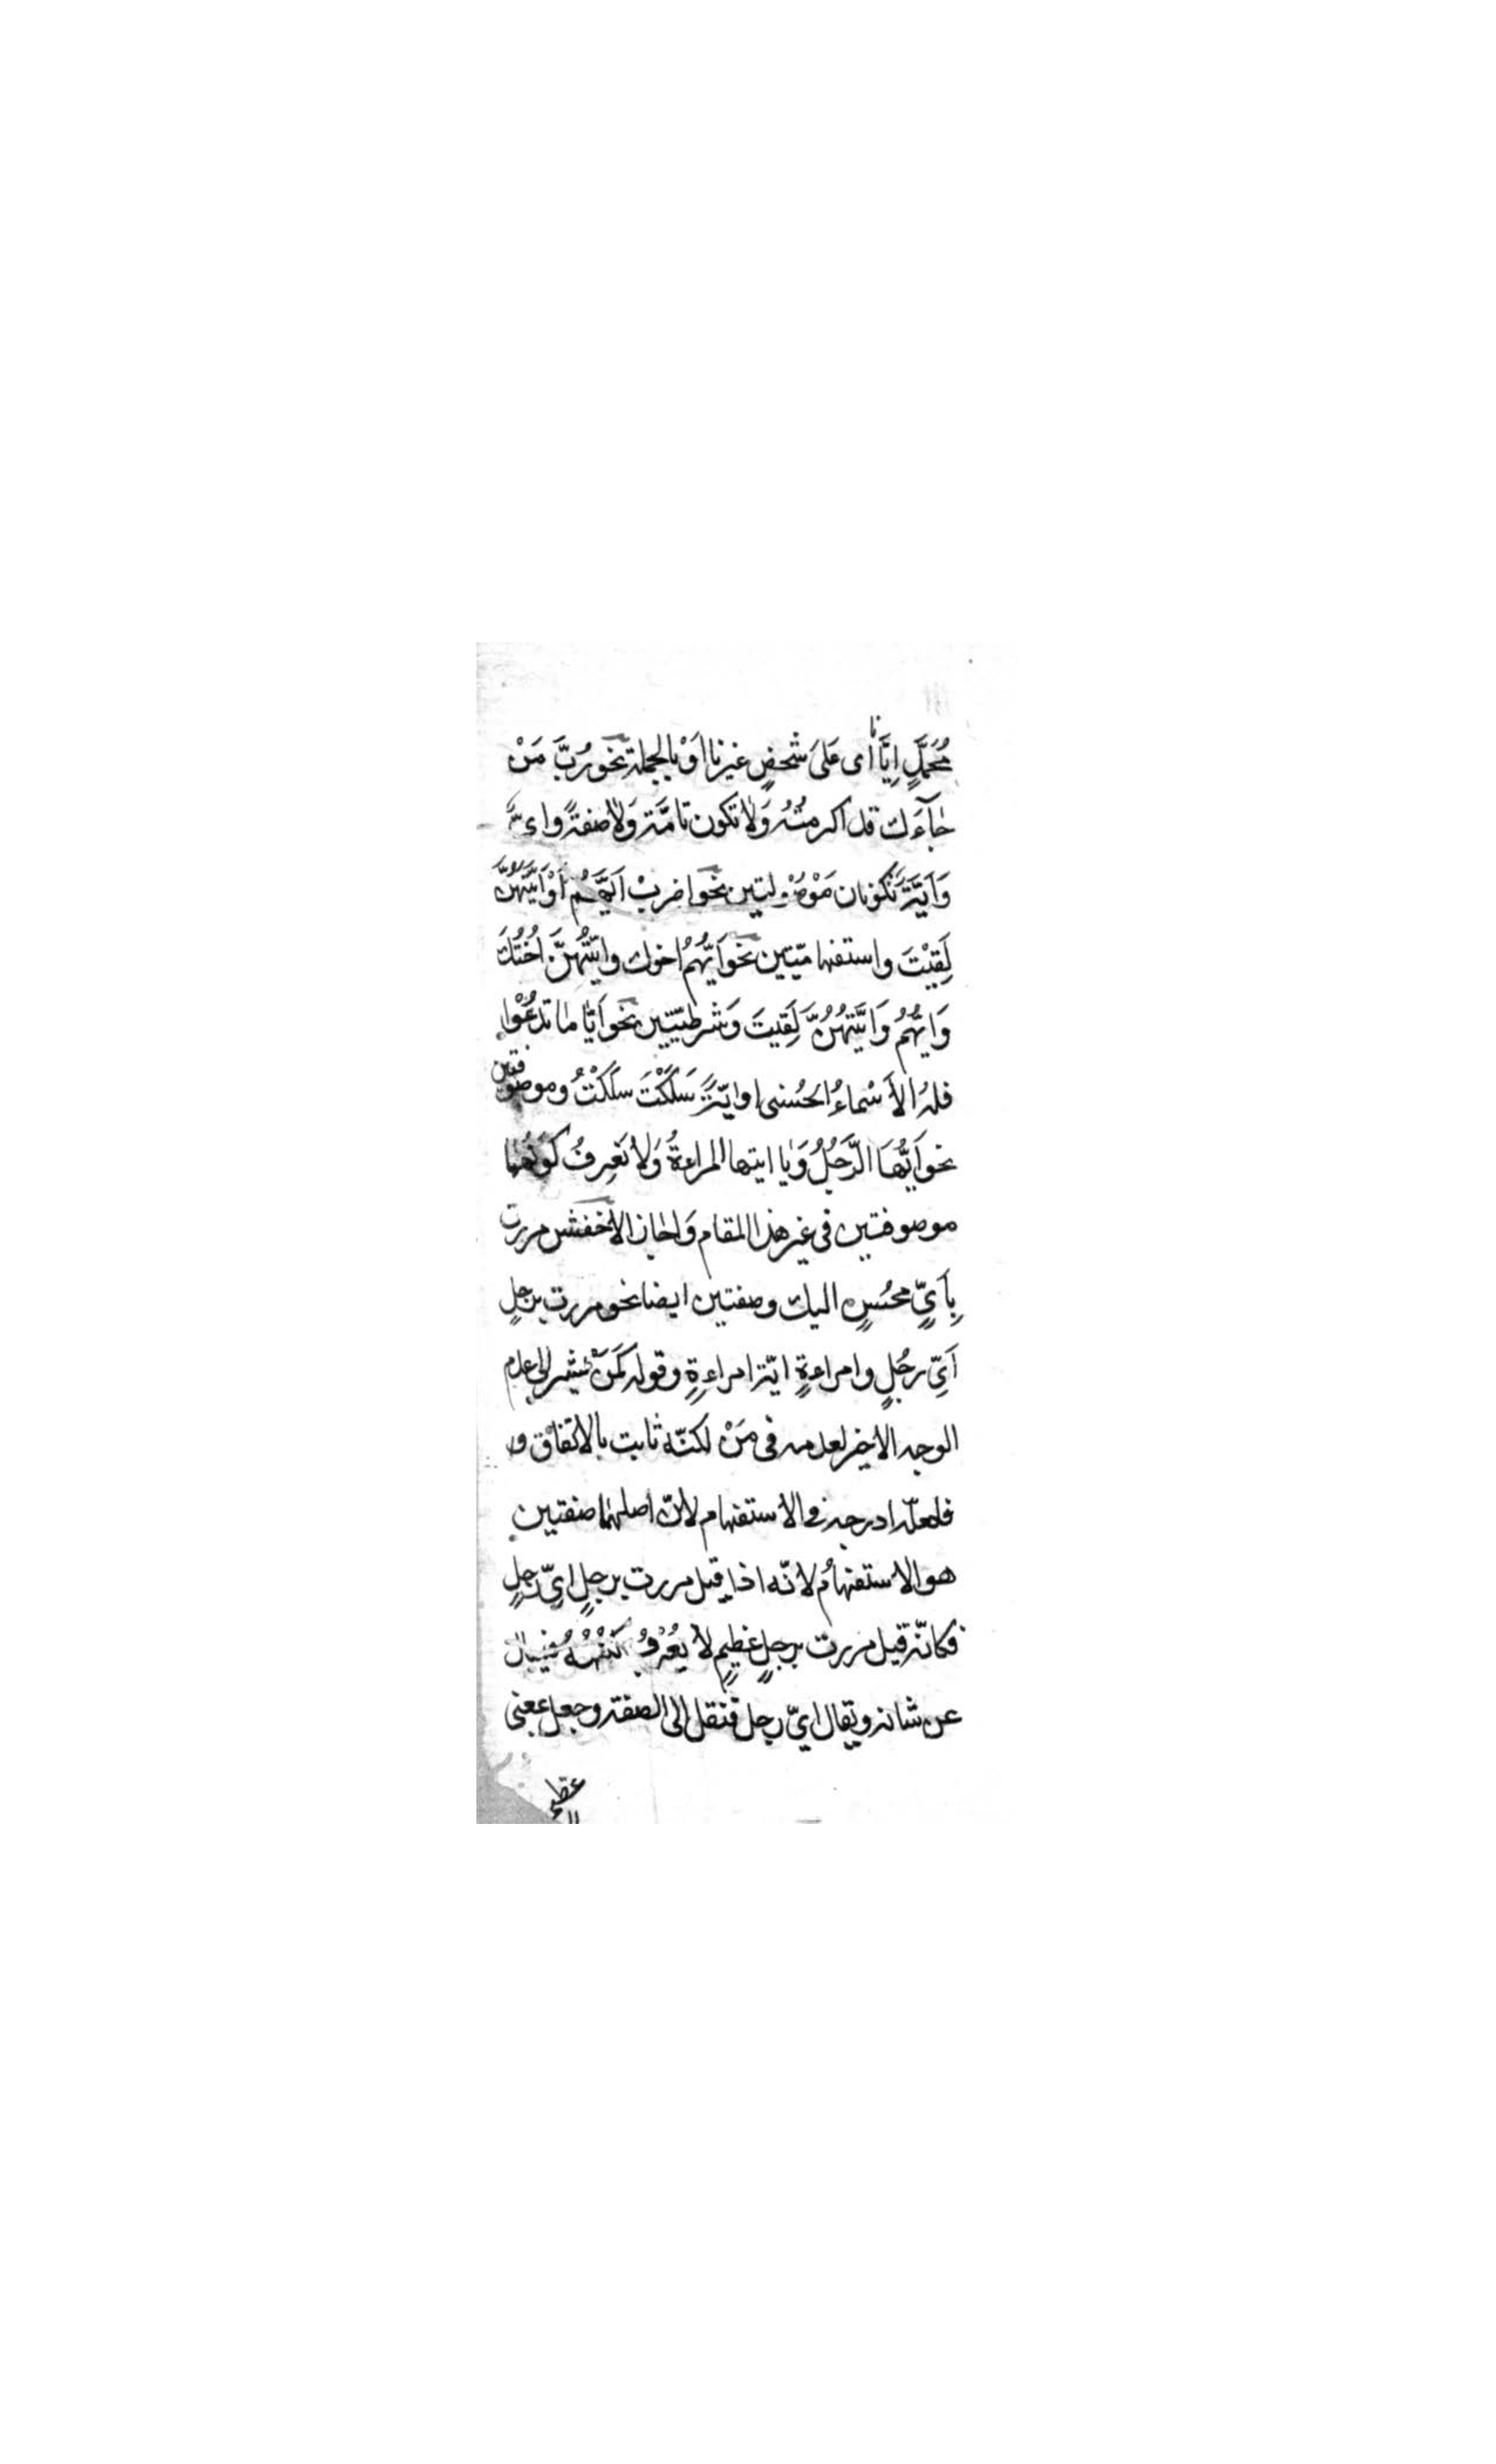 مُحَمَّدٍ اِيَّانا اى عَلىَ شَخصٍ غيرنا اَوْ بالجملة نحو رُبَّ مَنْ
جٰاۤءَكَ قد اكرمتُهُ وَلا تكون تامَّة وَلا صفةً واىٌّ
وَاَيَّةٌ تَكونان مَوْصُولتين نحو اضربْ اَيَّهُمْ اَوْ اَيَّتَهُنَّ
لَقِيْتَ واستفهاميّتين نحو اَيُّهُمْ اخوك وايّتُهُنَّ اُخْتُكَ
وَايَّهُمْ وَايَّتَهُنَّ لَقِيتَ وَشرطيّتين نحو اَيًّا مٰا تدْعُوْا
فلهُ الأَسْماۤءُ الحُسْنى او ايّةً سَلَكْتَ سلَكْتُ وموصوفتين
نحو اَيُّهَا الرَّجُلُ وَيٰا ايتها المراءةُ وَلا نَعرِفُ كَونَهُمٰا
موصوفتين فى غير هذا المقام وَاجٰاز الأخفش مررت
بِاَىٍّ محسُنٍ اليك وصفتين ايضا نحو مررت برجلٍ
اَىِّ رجُلٍ وامراءةٍ ايّة امراءةٍ وقوله كَمَنْ يشير الى عدم
الوجه الأخير لعدمه فى مَنْ لكنّه ثابت بالاتفاق و
فلعلّه ادرجه فى الاستفهام لانّ اصلهما صفتين
هو الاستفهامُ لانّه اذا قيل مررت برجلٍ اىِّ رجلٍ
فكانّه قيل مررت برجلٍ عَظيمٍ لا يُعْرَفُ كنهُهُ فيسأل
عن شانه ويقال اىّ رجل فنقل الى الصفة وجعل بمعنى
عظيم